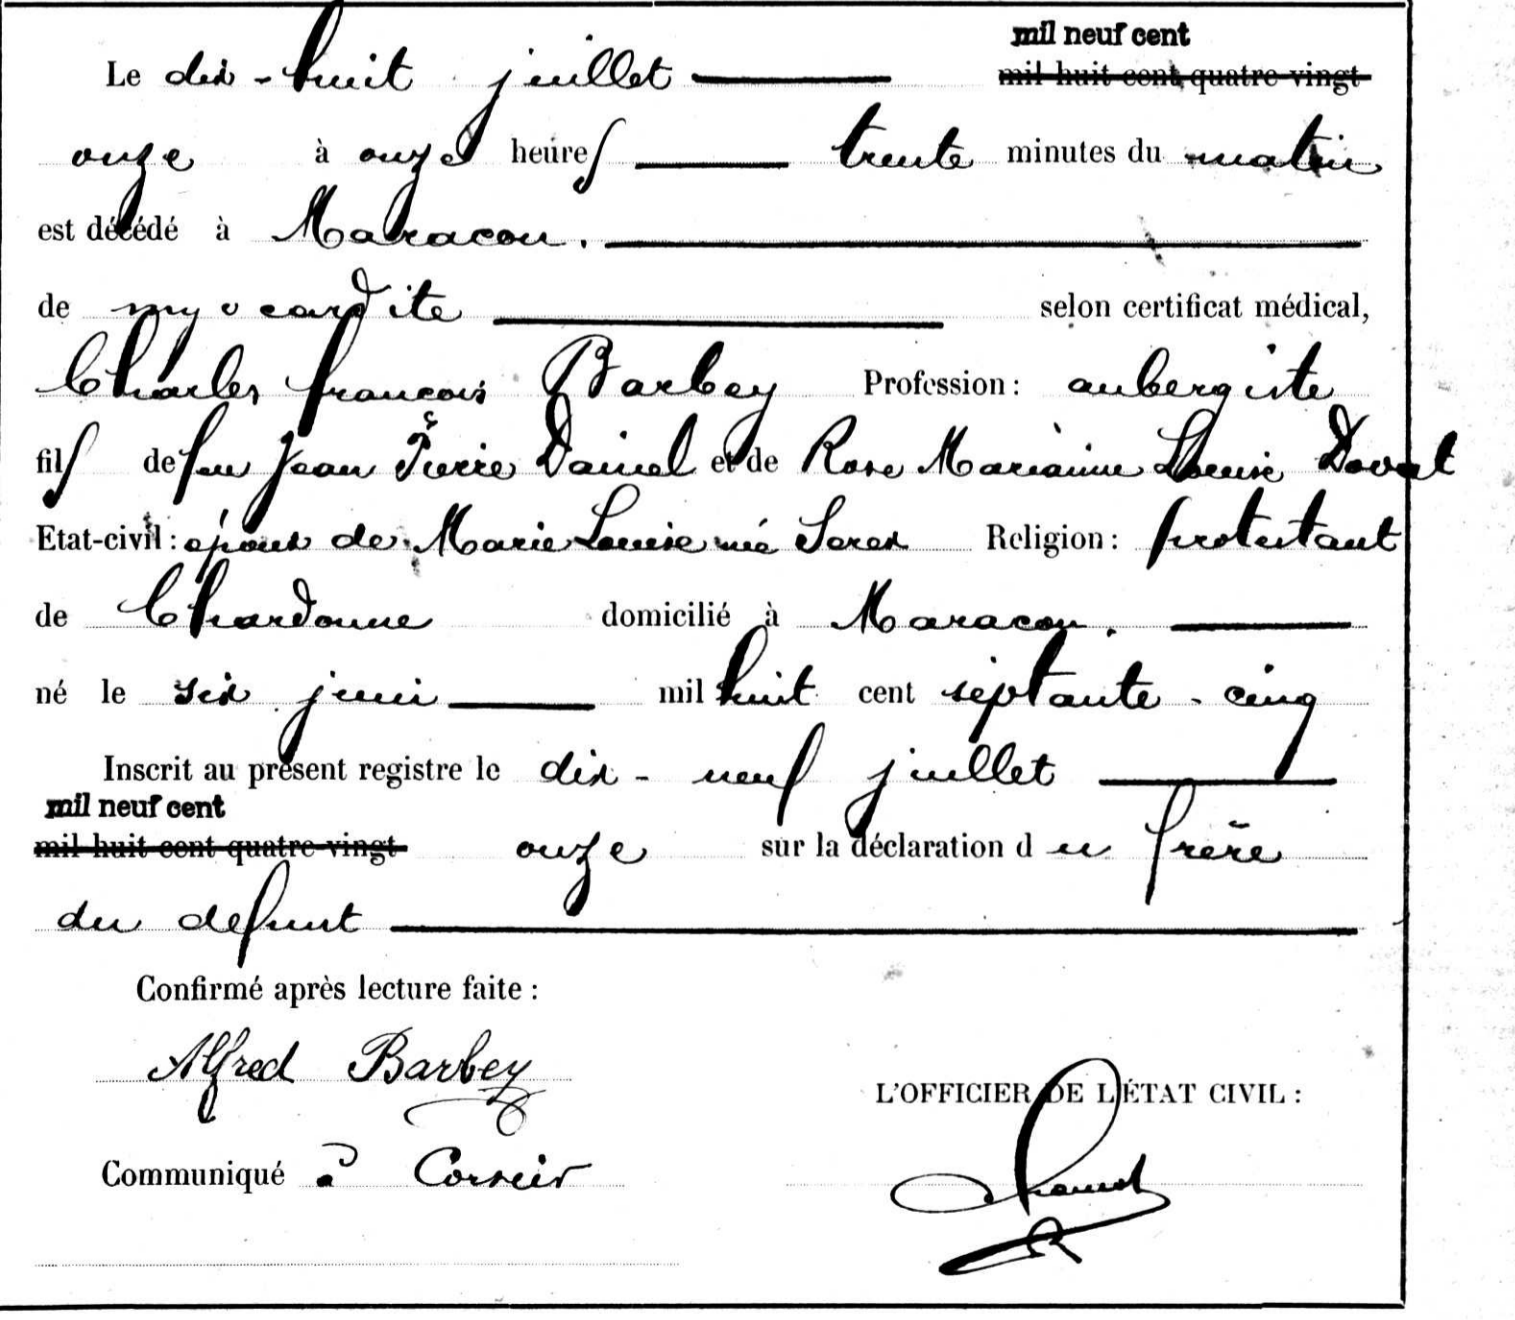 mil neuf cent
Le dix-huit juillet mil huit cent quatre-vingt
onze à onze heures trente minutes du matin
est décédé à Maracon.
de myocardite selon certificat médical,
Charles françois Barbey Profession : aubergiste
fils de feu Jean Pierre Daniel et de Rose Marianne Louise Dovat
Etat-civil : époux de Marie Louise née Serex Religion : protestant
de Chardonne domicilié à Maracon.
né le six juin mil huit cent septante-cinq
Inscrit au présent registre le dix-neuf juillet
mil neuf cent
mil huit cent quatre-vingt onze sur la déclaration du frère
du defunt
Confirmé après lecture faite :
Alfred Barbey
L'OFFICIER DE L'ÉTAT CIVIL :
Communiqué à Corseir